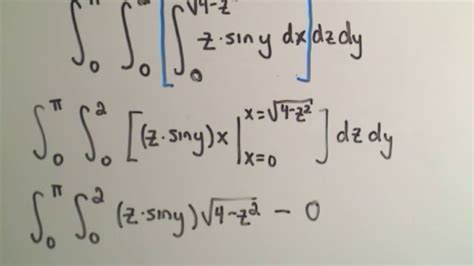 ∫₀^π ∫₀² [∫₀^√(4-z²) z·siny dx] dz dy
∫₀^π ∫₀² [(z·siny)x |_{x=0}^{x=√(4-z²)}] dz dy
∫₀^π ∫₀² (z·siny)√(4-z²) - 0